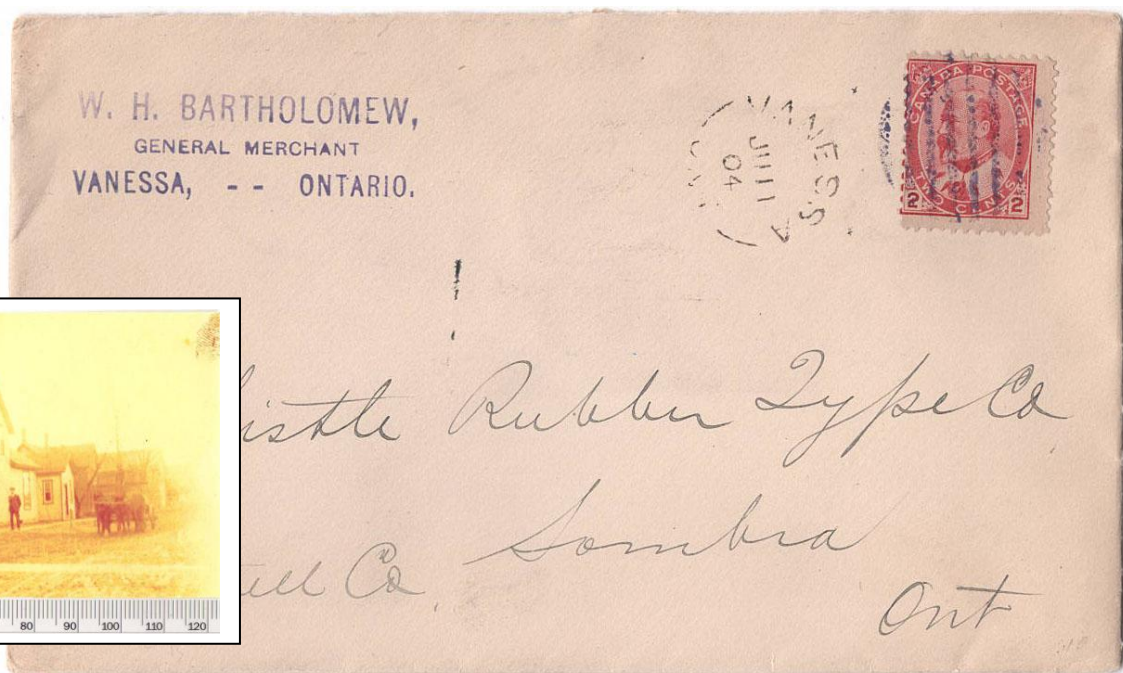 W. H. BARTHOLOMEW,
GENERAL MERCHANT
VANESSA, - - ONTARIO.
VANESSA
JU 11
04
CANADA POSTAGE
2 TWO CENTS 2
Rubber Type Co
Sombra
Co.
Ont
80 90 100 110 120